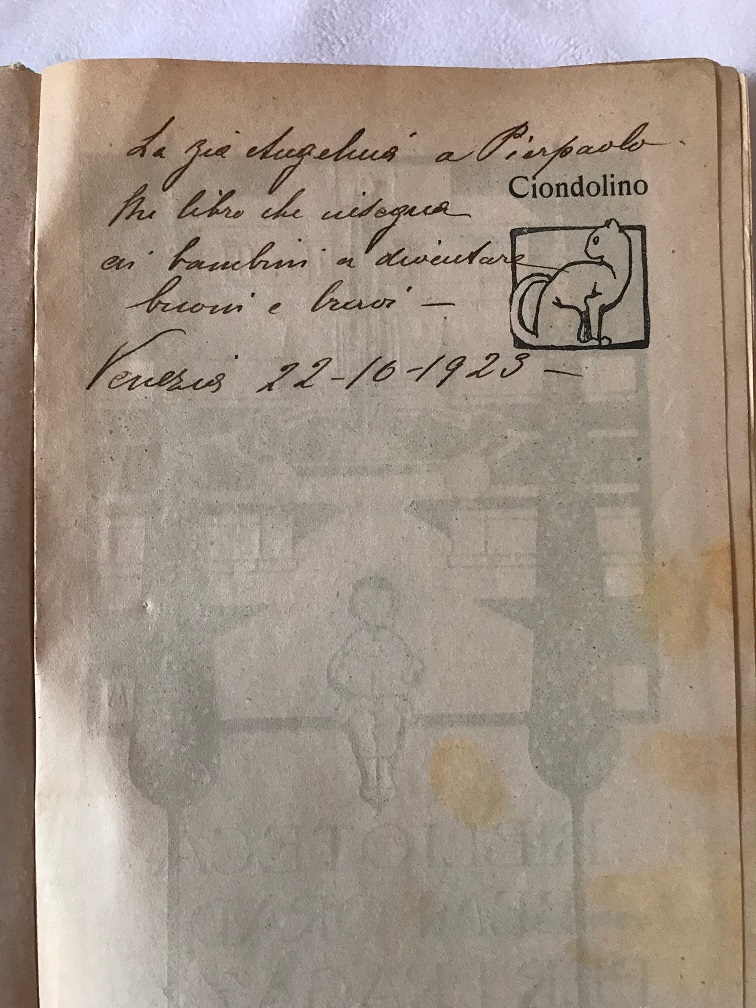 La zia Angelina a Pierpaolo
Ciondolino
Un libro che insegna
ai bambini a diventare
buoni e bravi —
Venezia 22-10-1923 —
BIBLIOTECA